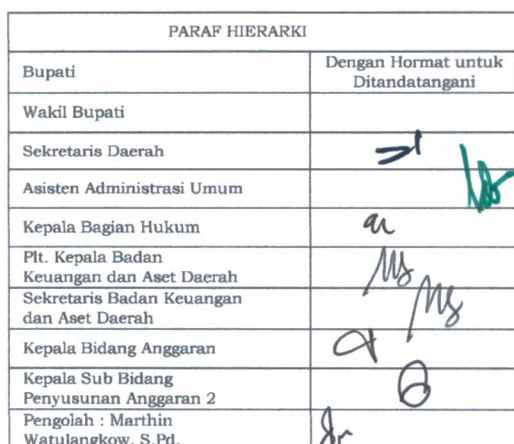 PARAF HIERARKI
Bupati
Dengan Hormat untuk
Ditandatangani
Wakil Bupati
Sekretaris Daerah
Asisten Administrasi Umum
Kepala Bagian Hukum
Plt. Kepala Badan
Keuangan dan Aset Daerah
Sekretaris Badan Keuangan
dan Aset Daerah
Kepala Bidang Anggaran
Kepala Sub Bidang
Penyusunan Anggaran 2
Pengolah : Marthin
Watulangkow, S.Pd.